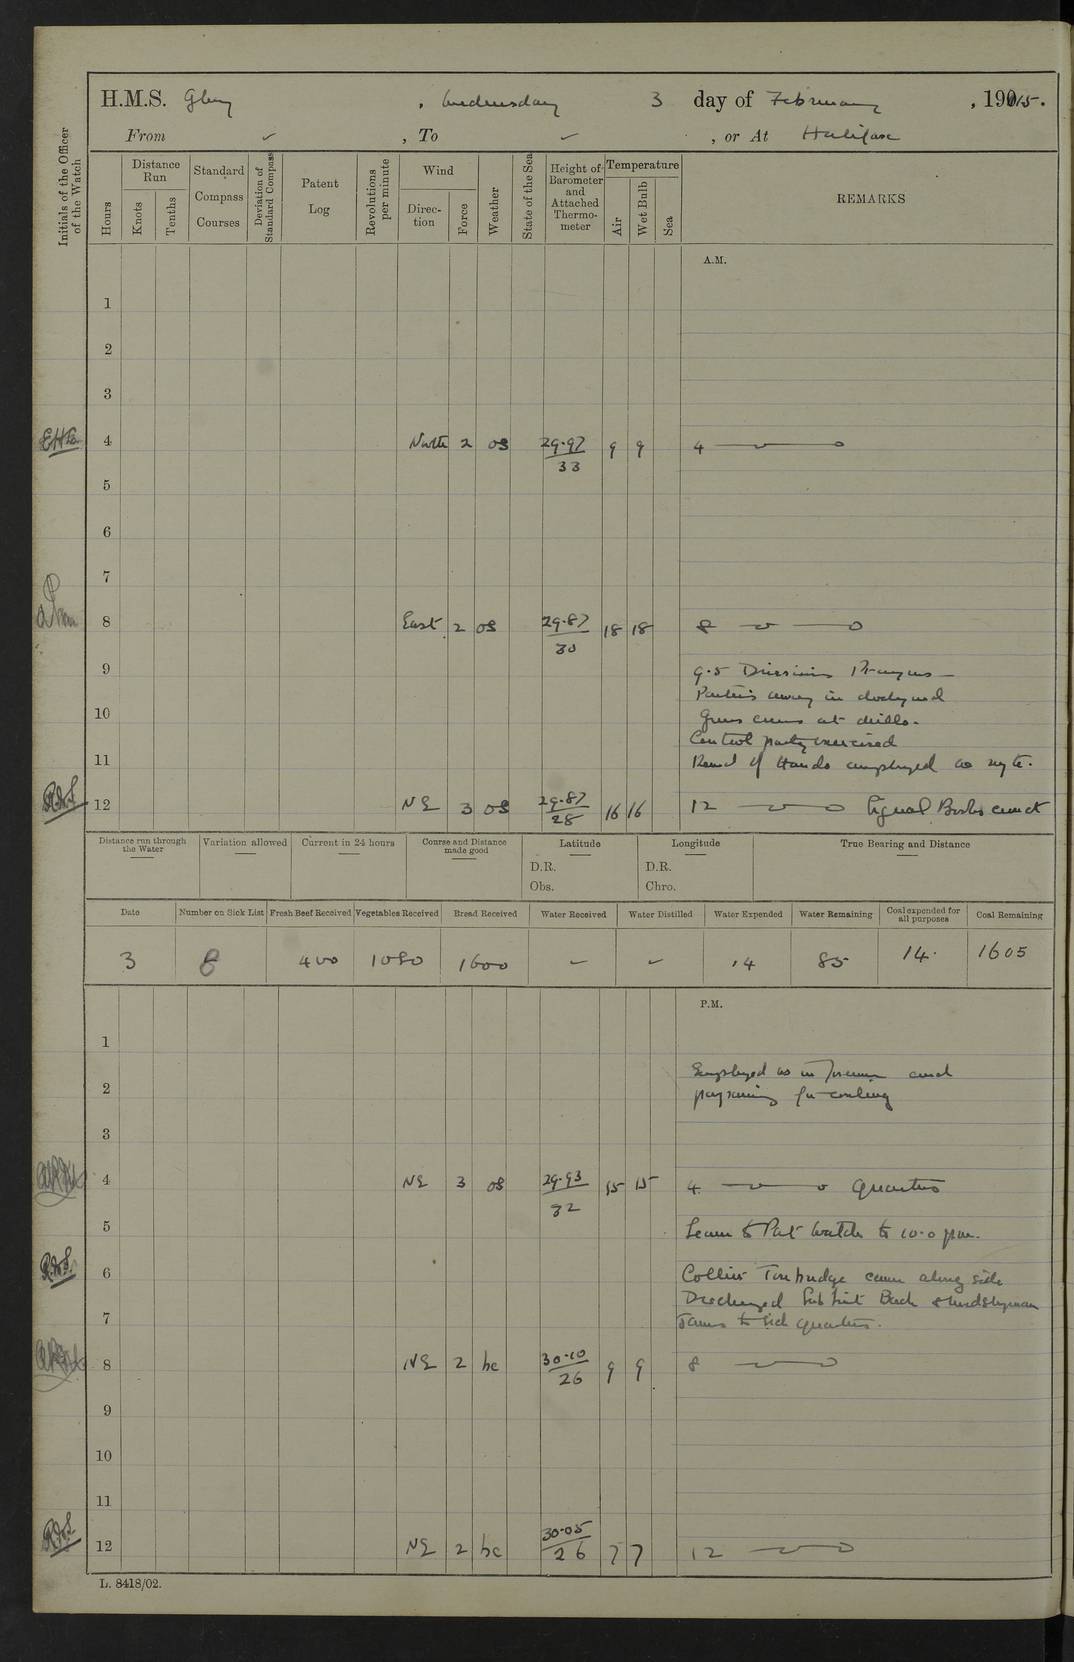 H.M.S. Glory, Wednesday 3 day of February, 1915.
From ✓, To ✓, or At Halifax
Initials of the Officer of the Watch
Hours
Distance Run
Knots
Tenths
Standard Compass Courses
Deviation of Standard Compass
Patent Log
Revolutions per minute
Wind
Direction
Force
Weather
State of the Sea
Height of Barometer and Attached Thermometer
Temperature
Air
Wet Bulb
Sea
REMARKS
A.M.
1
2
3
4 North 2 os 29.97/33 9 9 4
5
6
7
8 East 2 os 29.87/30 18 18 8
9 9.5 Divisions Prayers
Parties away in dockyard
10 Guns crews at drills.
Control party exercised
11 Remd of Hands employed as nyte.
12 NE 3 os 29.87/28 16 16 12 Signal Books correct
Distance run through the Water
Variation allowed
Current in 24 hours
Course and Distance made good
Latitude
D.R.
Obs.
Longitude
D.R.
Chro.
True Bearing and Distance
Date Number on Sick List Fresh Beef Received Vegetables Received Bread Received Water Received Water Distilled Water Expended Water Remaining Coal expended for all purposes Coal Remaining
3 8 400 1080 1600 – – 14 85 14. 1605
P.M.
1
Employed as in Forenoon and
2 preparing for coaling
3
4 NE 3 os 29.93/32 15 15 4 Quarters
5 Leave to Part Watch to 10.0 pm.
6 Collier Tonbridge came along side
Discharged Sub Lieut &
7 to Sick quarters.
8 NE 2 bc 30.10/26 9 9 8
9
10
11
12 NE 2 bc 30.05/26 7 7 12
L. 8418/02.